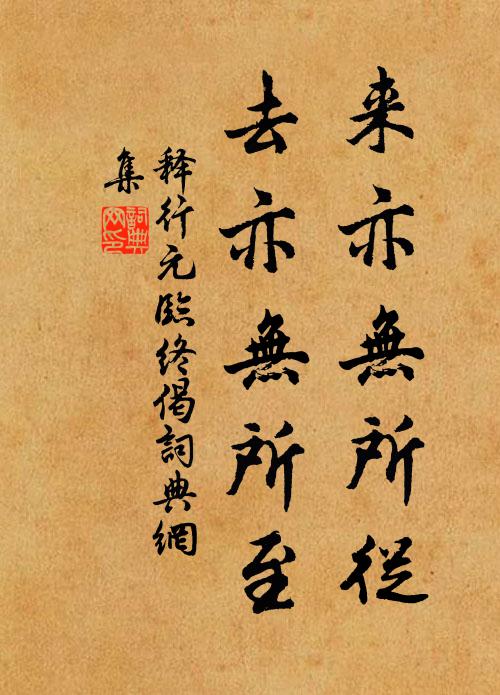 来亦無所從
去亦無所至
释行元臨终偈詞典網
集
詞典網印